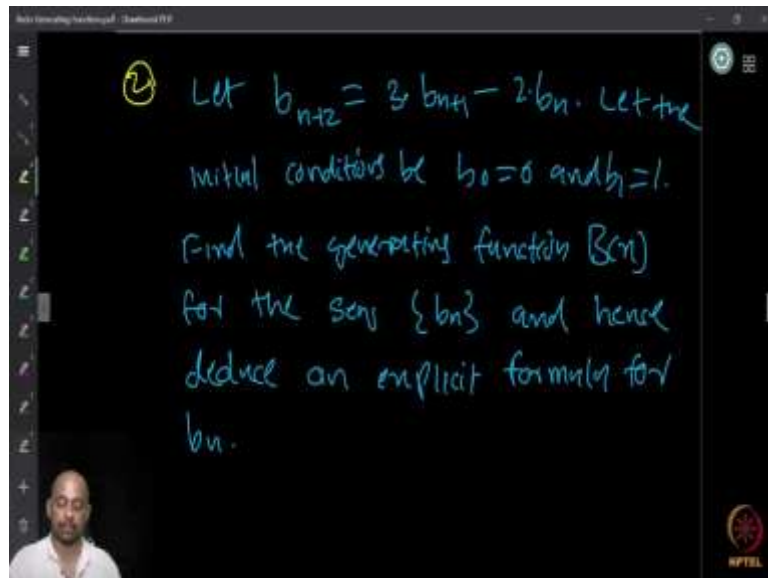 ② Let b_{n+2} = 3·b_{n+1} - 2·b_n. Let the
initial conditions be b_0=0 and b_1=1.
Find the generating function B(x)
for the seq {b_n} and hence
deduce an explicit formula for
b_n.
NPTEL